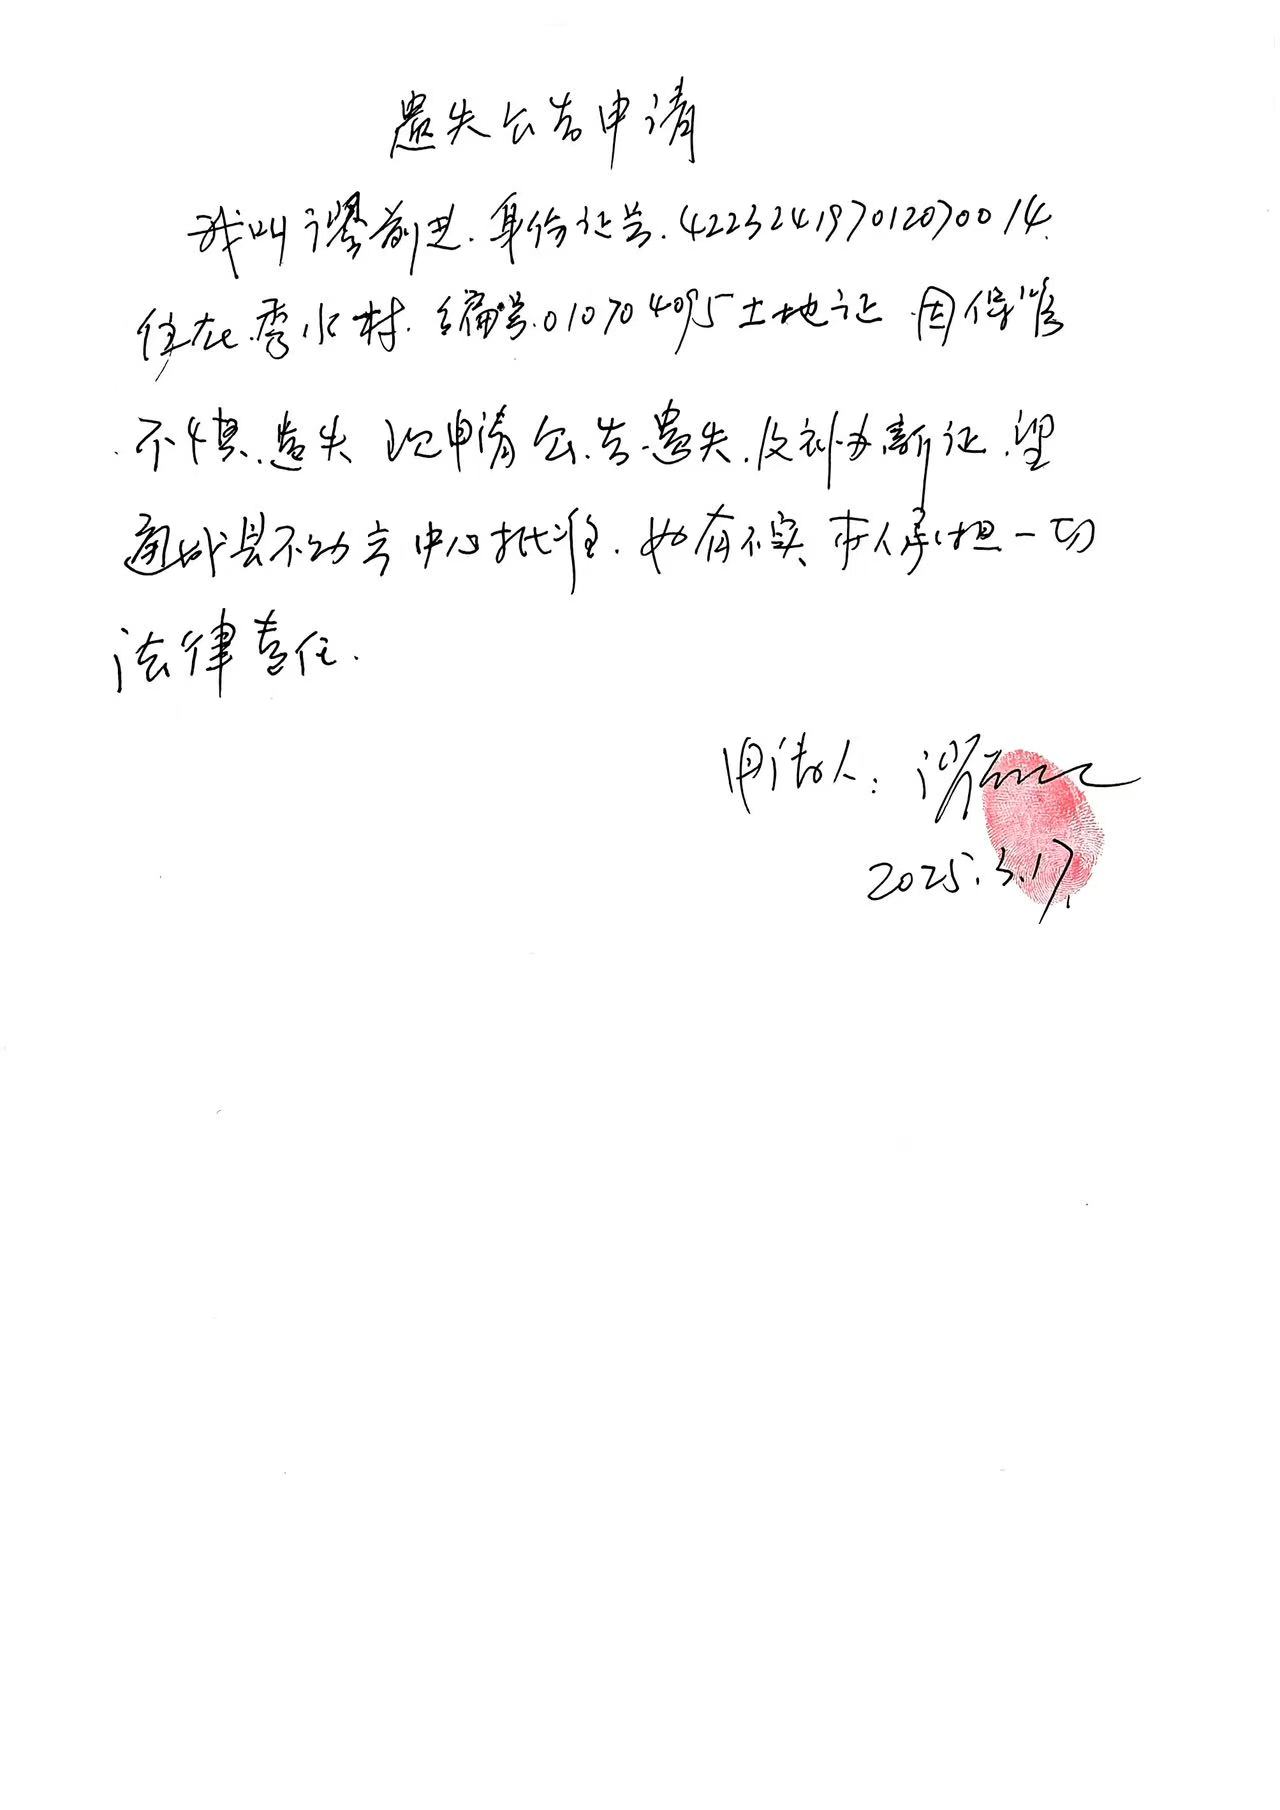 遗失公告申请
我叫谭前进.身份证号.422324197012070014.
住在.秀水村.编号.010704095土地证.因保管
不慎.遗失 现申请公告遗失.及补办新证.望
通城县不动产中心批准.如有不实、本人承担一切
法律责任.
申请人:谭
2025.3.17.